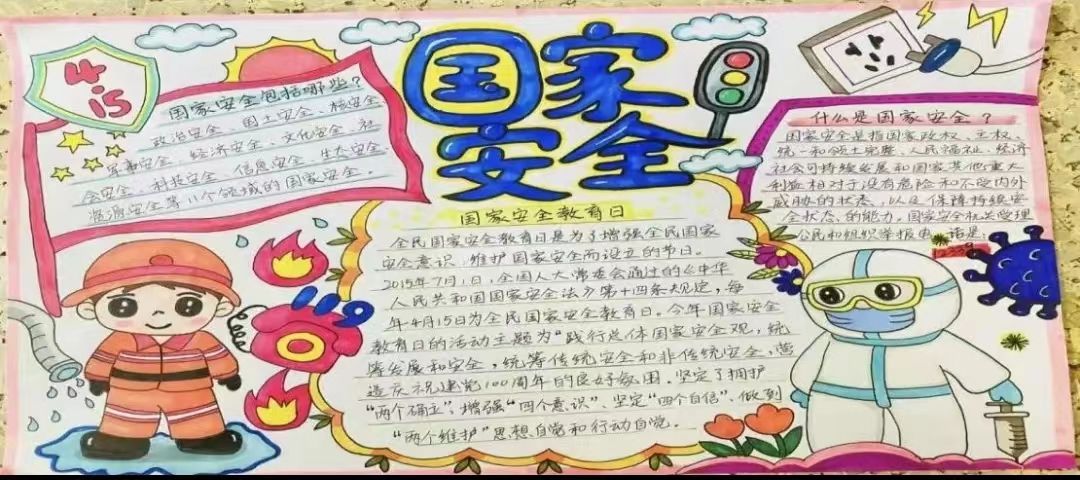 国家安全
4
15
国家安全包括哪些？
政治安全、国土安全、核安全、
军事安全、经济安全、文化安全、社
会安全、科技安全、信息安全、生态安全、
资源安全等11个领域的国家安全。
119
国家安全教育日
全民国家安全教育日是为了增强全民国家
安全意识，维护国家安全而设立的节日。
2015年7月1日，全国人大常委会通过的《中华
人民共和国国家安全法》第十四条规定，每
年4月15日为全民国家安全教育日。今年国家安全
教育日的活动主题为“践行总体国家安全观，统
筹发展和安全，统筹传统安全和非传统安全，营
造庆祝建党100周年的良好氛围。坚定了拥护
“两个确立”、增强“四个意识”、坚定“四个自信”、做到
“两个维护”思想自觉和行动自觉。
什么是国家安全？
国家安全是指国家政权、主权、
统一和领土完整、人民福祉、经济
社会可持续发展和国家其他重大
利益相对于没有危险和不受内外
威胁的状态，以及保障持续安
全状态的能力，国家安全机关受理
公民和组织举报电话是：
12339